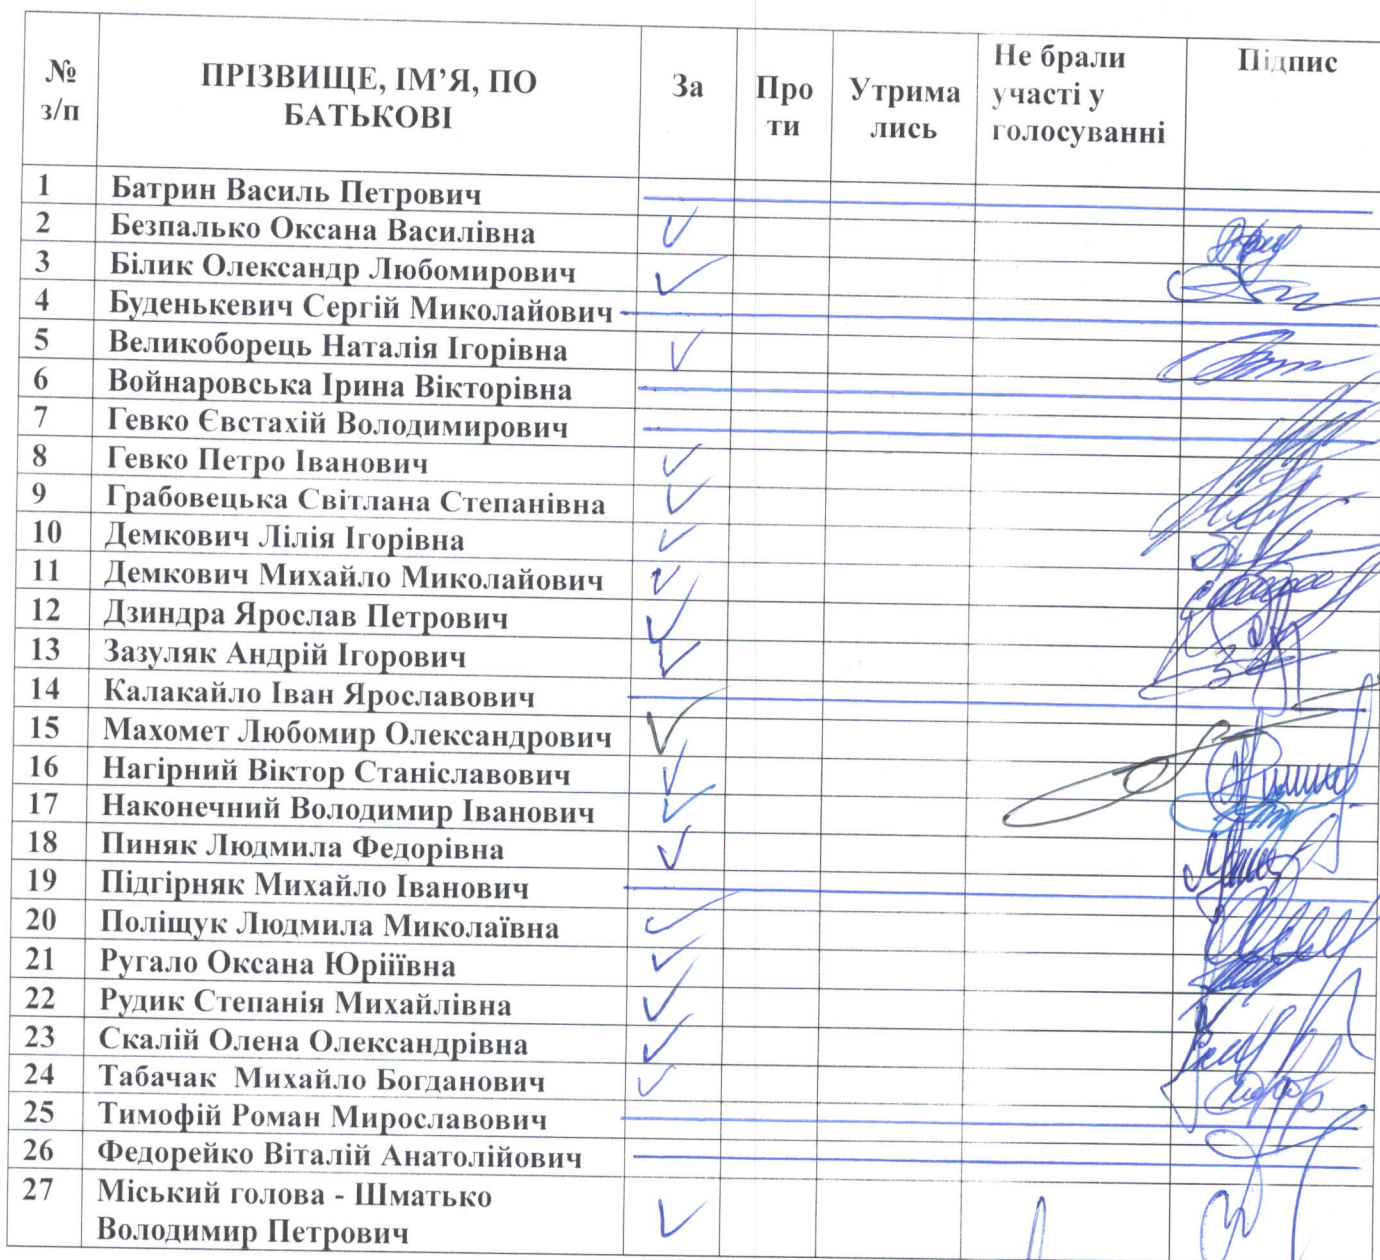 № з/п
ПРІЗВИЩЕ, ІМ’Я, ПО
БАТЬКОВІ
За
Про
ти
Утрима
лись
Не брали
участі у
голосуванні
Підпис
1 Батрин Василь Петрович
2 Безпалько Оксана Василівна
3 Білик Олександр Любомирович
4 Буденькевич Сергій Миколайович
5 Великоборець Наталія Ігорівна
6 Войнаровська Ірина Вікторівна
7 Гевко Євстахій Володимирович
8 Гевко Петро Іванович
9 Грабовецька Світлана Степанівна
10 Демкович Лілія Ігорівна
11 Демкович Михайло Миколайович
12 Дзиндра Ярослав Петрович
13 Зазуляк Андрій Ігорович
14 Калакайло Іван Ярославович
15 Махомет Любомир Олександрович
16 Нагірний Віктор Станіславович
17 Наконечний Володимир Іванович
18 Пиняк Людмила Федорівна
19 Підгірняк Михайло Іванович
20 Поліщук Людмила Миколаївна
21 Ругало Оксана Юріїівна
22 Рудик Степанія Михайлівна
23 Скалій Олена Олександрівна
24 Табачак Михайло Богданович
25 Тимофій Роман Мирославович
26 Федорейко Віталій Анатолійович
27 Міський голова - Шматько
Володимир Петрович